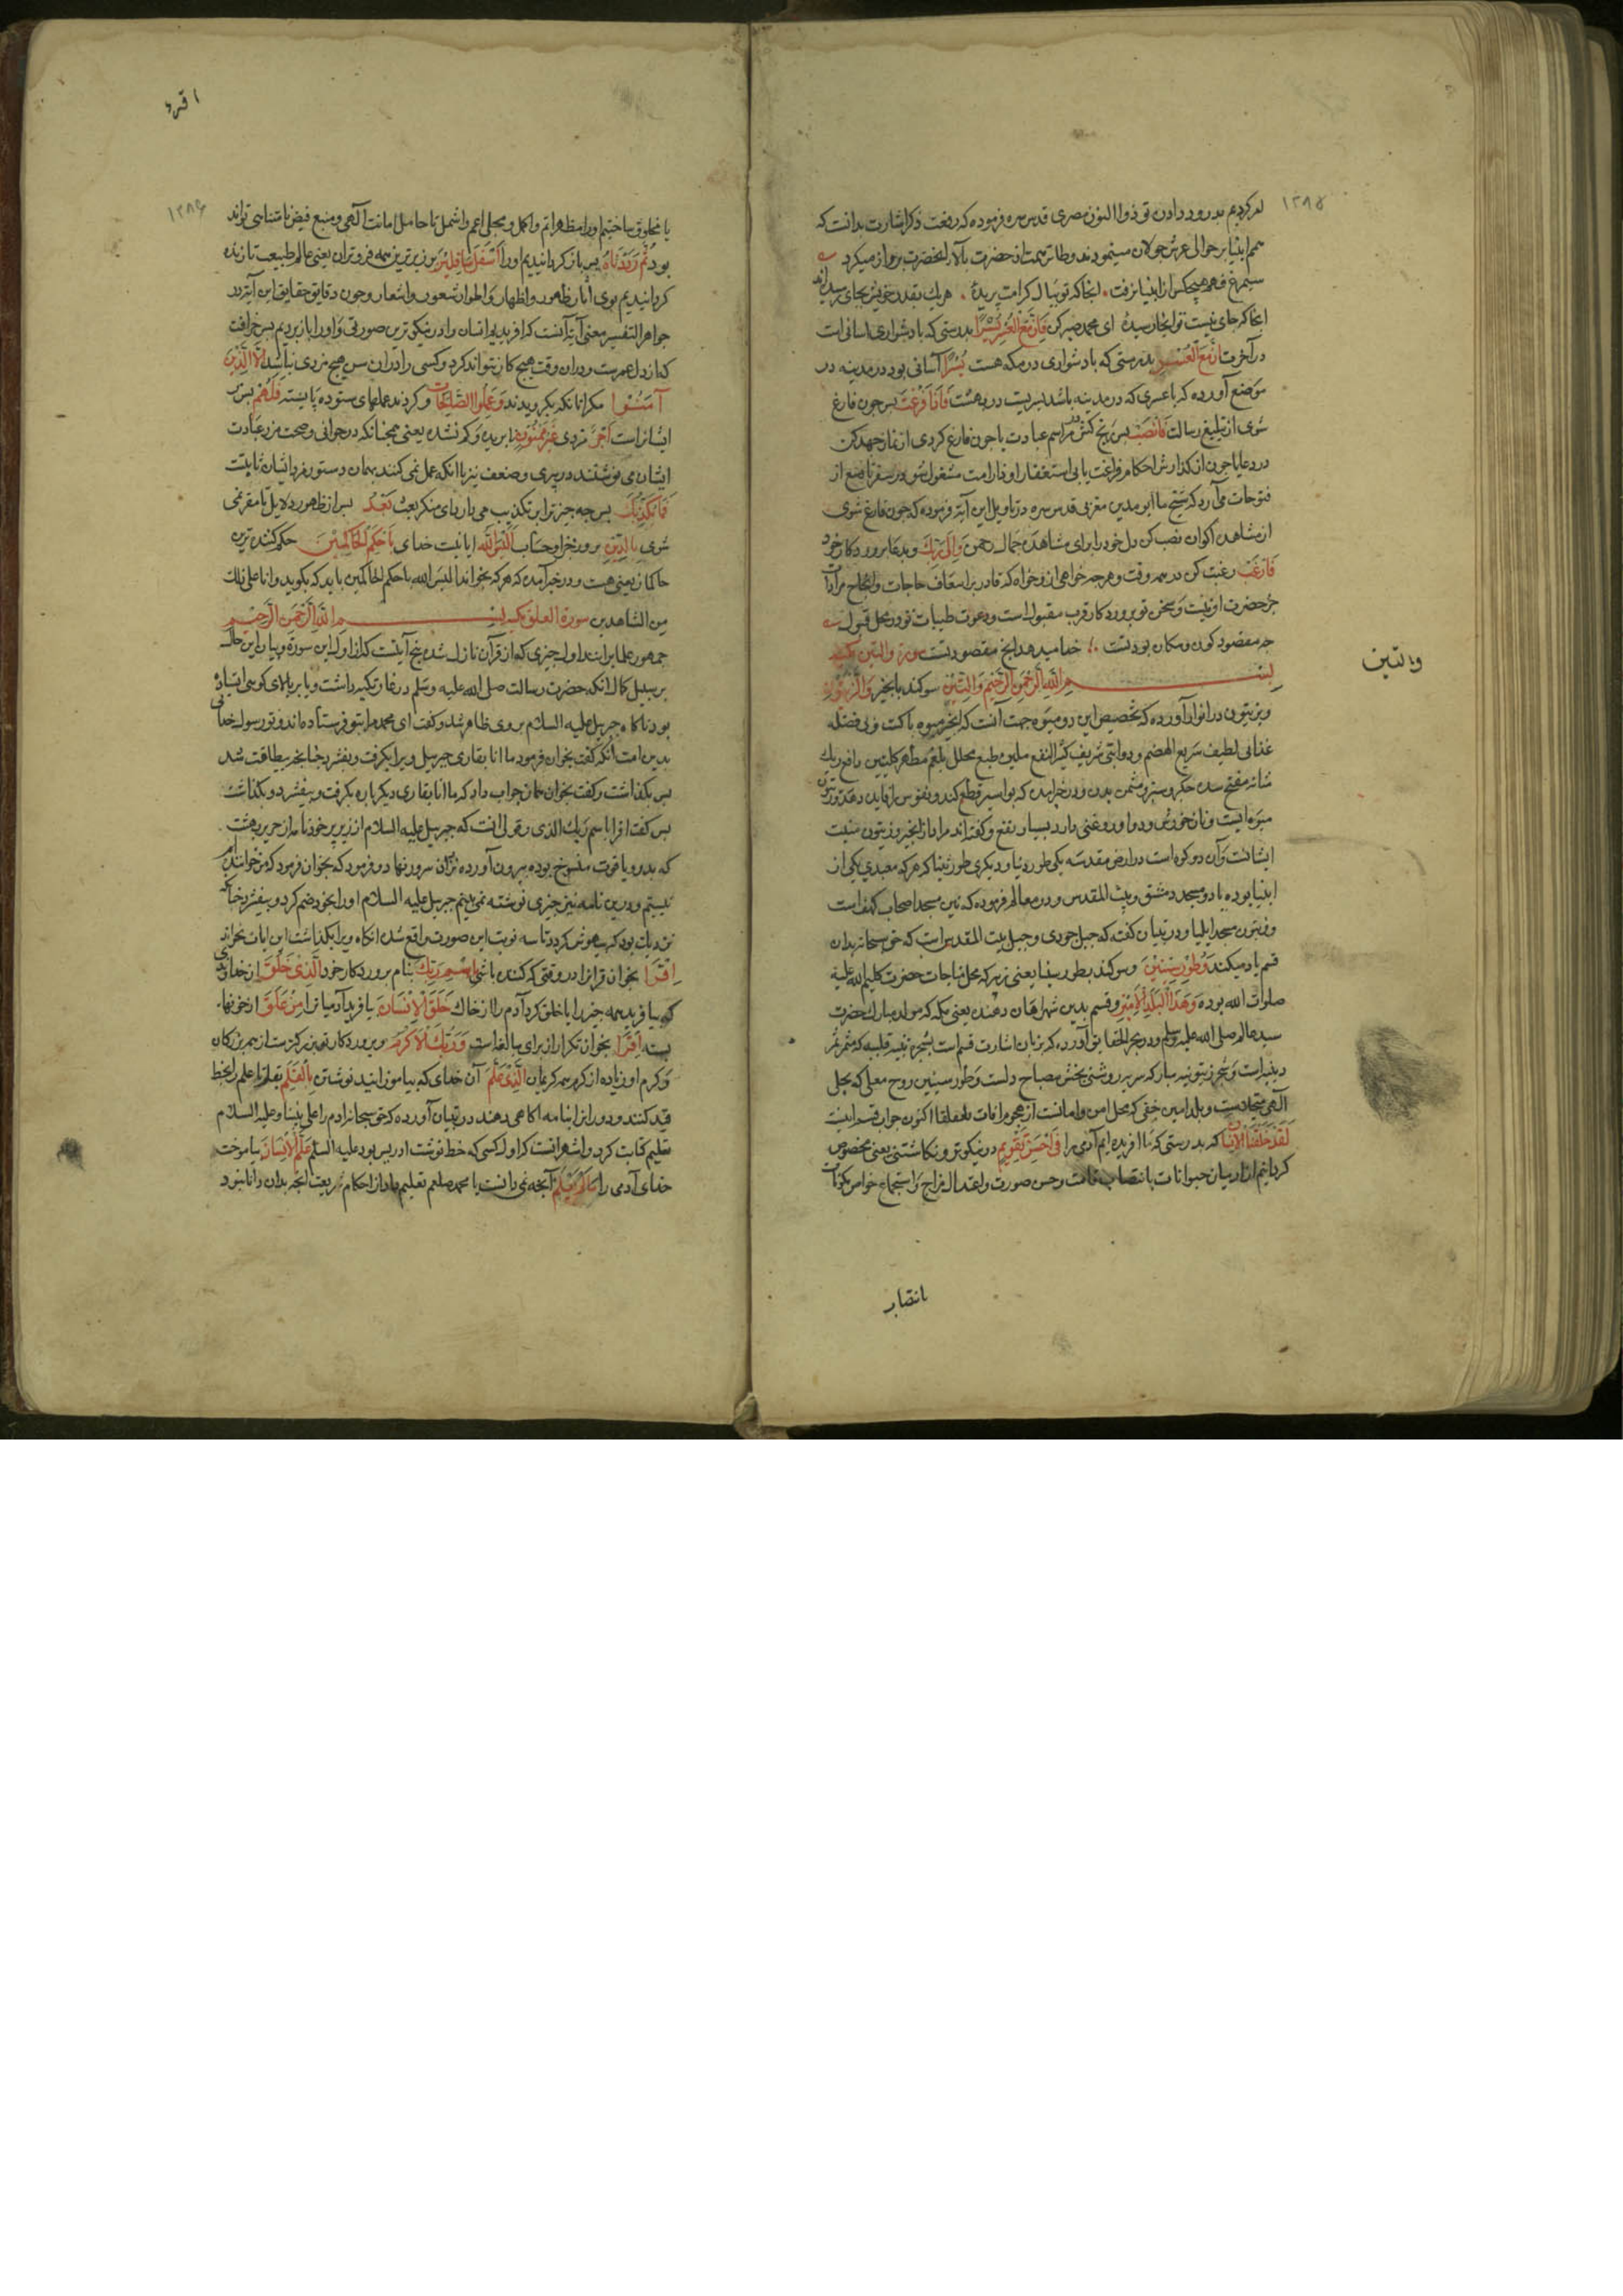 ۱۲۸۵
هم کردیم بدرود دادن تو ذوالنون مصری قدس سره فرموده که رفعت ذکر اشارت بدانست که
همم انبیا بر حوالی عرش جولان مینمودند و طائر همت از حضرت بالاتر از حضرت پرواز میکرد
سیمرغ فهم هیچکس از انبیا نرفت . انجا که تو ببال کرامت پریدۀ . هر یک بقدر خویش بجای رسیده‌اند
انجا که جای نیست تو انجا رسیدۀ ای محمد صبر کن فَاِنَّ مَعَ الْعُسْرِ یُسْرًا بدرستی که با دشواری اسانی است
در آخرت اِنَّ مَعَ الْعُسْرِ بدرستی که با دشواری در مکه هست یُسْرًا آسانی بود در مدینه در
موضع آورده که با عسری که در مدینه باشد یسریست در بهشت فَاِذَا فَرَغْتَ پس چون فارغ
شوی از تبلیغ رسالت فَانْصَبْ پس رنج کش در مراسم عبادت یا چون فارغ کردی از نماز جهد کن
در دعا یا چون از کذارش احکام فراغت یابی استغفار او
فتوحات می‌آرد که شیخ ما ابو مدین مغربی قدس سره در تاویل این آیة فرموده که چون فارغ شوی
از مشاهدۀ اکوان نصب کن دل خود را برای مشاهدۀ جمال رحمن وَاِلٰی رَبِّکَ و بدعا پروردکار خود
فَارْغَبْ رغبت کن در همه وقت و هر چه خواهی ازو خواه که قادر بر اسعاف حاجات و انجاح مرادات
جز حضرت او نیست و سخن تو بپروردکار قرب مقبول است و دعوت طیبات تو در محل قبول
جز مقصود کون و مکان بود تست ∴ خدا میدهد انچ مقصود تست سورة والتین مکیه
بسم الله الرحمن الرحیم وَالتِّینِ سوکند بانجیر وَالزَّیْتُونِ
و بزیتون در انوار آورده که تخصیص این دو میوه جهت آنست که انجیر میوه پاکست و بی فضله
غذائی لطیف سریع الهضم و دوائی شریف کثیر النفع ملین طبع محلل بلغم مطهر کلیتین رافع ریک
مثانه مفتح سدۀ جکر و سپرز و مسمن بدن و در خبر آمده که بواسیر قطع کند و نقرس را فایده دهد و زیتون
میوه ایست و نان خورش و دوا و روغنی دارد بسیار نفع و کفته‌اند مراد از انجیر و زیتون منبت
ایشانست و آن دو کوه است در ارض مقدسه یکی طور زیتا و دیکری طور تینا که هر که معبدی یکی از
انبیا بوده یا دو مسجد دمشق و بیت المقدس و در معالم فرموده که تین مسجد اصحاب کهف است
و زیتون مسجد ایلیا و در تبیان کفت که جبل جودی و جبل بیت المقدس است که حق سبحانه بدان
قسم یاد میکند وَطُورِ سِینِینَ و سوکند بطور سینا یعنی زبیر که محل مناجات حضرت کلیم الله علیه
صلوات الله بوده وَهٰذَا الْبَلَدِ الْاَمِینِ و قسم بدین شهر امان دهنده یعنی مکه که مولد مبارک حضرت
سید عالم صلی الله علیه وسلم و در بحر الحقایق آورده که بزبان اشارت قسم است بشجرۀ تینیه قلبیه که مثمر ثمر
دینیه است و شجرۀ زیتونیه مبارکه سریه روشنی بخش مصباح دلست و طور سینین روح معلی که محل تجلی
آلهی متجادست و بلد امین خفی که محل امن و امانست از هجوم آفات اکنون جواب قسم اینست
لَقَدْ خَلَقْنَا الْاِنْسَانَ که بدرستی که ما افریده‌ایم آدمی را فِی اَحْسَنِ تَقْوِیمٍ در نیکوترین نکاشتنی یعنی مخصوص
کردانیم او را از میان حیوانات بانتصاب قامت و حسن صورت و اعتدال مزاج و استجماع خواص مکونات
والتین
با نقبا بر
اقرء
۱۲۸۶
یا مخلوق ساختیم او را مظهر اتم و اکمل و مجلی اعم و اشمل تا حامل امانت آلهی و منبع فیض نامتناهی تواند
بود ثُمَّ رَدَدْنَاهُ پس باز کردانیدیم او را اَسْفَلَ سَافِلِینَ بزیرترین همه فروتران یعنی عالم طبیعت تا زنده
کردانیدیم بوی آثار ظهور و اظهار و اطوار شعور و اشعار و چون دقایق حقایق این آیة در
جواهر التفسیر معنی آیة آنست که افریدیم انسان را در نیکوترین صورتی و او را باز بردیم بس خرافت
که ارذل عمرست و در ان وقت هیچ کار نتواند کرد و کسی را در ان سن هیچ مزدی نباشد اِلَّا الَّذِینَ
آمَنُوا مکر انانکه بکرویدند وَعَمِلُوا الصَّالِحَاتِ و کردند عملهای ستوده و بایسته فَلَهُمْ پس مر
ایشانراست اَجْرٌ مزدی غَیْرُ مَمْنُونٍ نا بریده و کم نشده یعنی همچنانکه در جوانی و صحت مزد عبادت
ایشان می نوشتند در پیری و ضعف نیز باانکه عمل نمی کنند بهمان دستور مزد ایشان ثابتست
فَمَا یُکَذِّبُکَ پس چه چیز ترا بر تکذیب می دارد ای منکر بعث بَعْدُ پس از ظهور دلایل تا مقر نمی
شوی بِالدِّینِ بروز جزا و حساب اَلَیْسَ اللّٰهُ ایا نیست خدای بِاَحْکَمِ الْحَاکِمِینَ حکم کننده‌ترین
حاکمان یعنی هست و در خبر آمده که هر که بخواند الیس الله باحکم الحاکمین باید که بکوید و انا علی ذلک
من الشاهدین سورة العلق مکیه بسم الله الرحمن الرحیم
جمهور علما برانند اول چیزی که از قرآن نازل شده پنج آیتست که از اول این سورة و بیان این حال
بر سبیل اجمال انکه حضرت رسالت صلی الله علیه وسلم در غار تکیه داشت و یا بر بالای کوهی استاده
بود ناکاه جبریل علیه السلام بر وی ظاهر شد و کفت ای محمد مرا بتو فرستاده‌اند و تو رسول خدائی
بدین امت انکه کفت بخوان فرمود ما انا بقاری جبریل ویرا بکرفت و بیفشرد چنانچه بی طاقت شد
پس بکذاشت و کفت بخوان همان جواب داد که ما انا بقاری دیکر باره بکرفت و بیفشرد و بکذاشت
پس کفت اقرا باسم ربک الذی و قولی انست که جبریل علیه السلام از زیر پر خود نامه از حریر بهشت
که بدر و یاقوت منسوج بوده بیرون آورده نزد ان سرور نهاد و فرمود که بخوان فرمود که من خواننده
نیستم و درین نامه نیز چیزی نوشته نمی بینم جبریل علیه السلام او را بخود ضم کرد و بیفشرد چنانکه
نزدیک بود که بیهوش کردد تا سه نوبت این صورت واقع شد انکاه ویرا بکذاشت این ایات بخواند
اِقْرَأْ بخوان قرانرا در وقتی که کننده باشی بِاسْمِ رَبِّکَ بنام پروردکار خود اَلَّذِی خَلَقَ ان خدای
که بیافرید همه چیز را یا خلق کرد آدم را از خاک خَلَقَ الْاِنْسَانَ بیافرید آدمیانرا مِنْ عَلَقٍ از خونها
بسته اِقْرَأْ بخوان تکرار از برای مبالغه است وَرَبُّکَ الْاَکْرَمُ و پروردکار تو بزرکترست از همه بزرکان
و کرم او زیاده از کرم همه کریمان اَلَّذِی عَلَّمَ آن خدای که بیاموزانید نوشتن بِالْقَلَمِ بقلم تا علم را بخط
قید کنند و دورانرا بنامه اکاهی دهند در تبیان آورده که حق سبحانه ادم را علی نبینا و علیه السلام
تعلیم کتابت کرد و اشهر انست که اول کسی که خط نوشت ادریس بود علیه السلم عَلَّمَ الْاِنْسَانَ بیاموخت
خدای آدمی را مَا لَمْ یَعْلَمْ آنچه نمی دانست یا محمد صلعم تعلیم داد از احکام شریعت انچه بدان دانا نبود